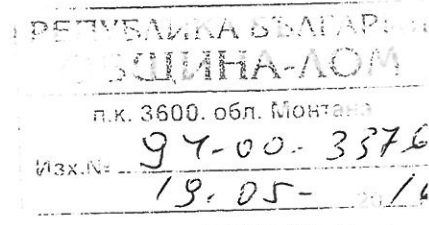 РЕПУБЛИКА БЪЛГАРИЯ
ОБЩИНА-ЛОМ
п.к. 3600. обл. Монтана
Изх.№ 94-00-3376
19.05- 20 16